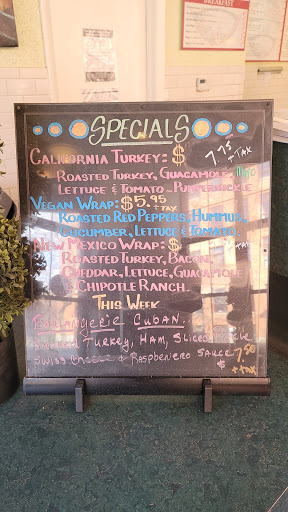 BREAKFAST
SPECIALS
CALIFORNIA TURKEY: $ 7.75 + TAX
ROASTED TURKEY, GUACAMOLE,
LETTUCE & TOMATO
VEGAN WRAP: $5.95 + TAX
ROASTED RED PEPPERS, HUMMUS,
CUCUMBER, LETTUCE & TOMATO.
NEW MEXICO WRAP: $ + TAX
ROASTED TURKEY, BACON,
CHEDDAR, LETTUCE, GUACAMOLE
& CHIPOTLE RANCH.
THIS WEEK
CUBAN...
TURKEY, HAM, SLICED
SWISS CHEESE & RASPBENERO SAUCE
$ 7.50 + TAX